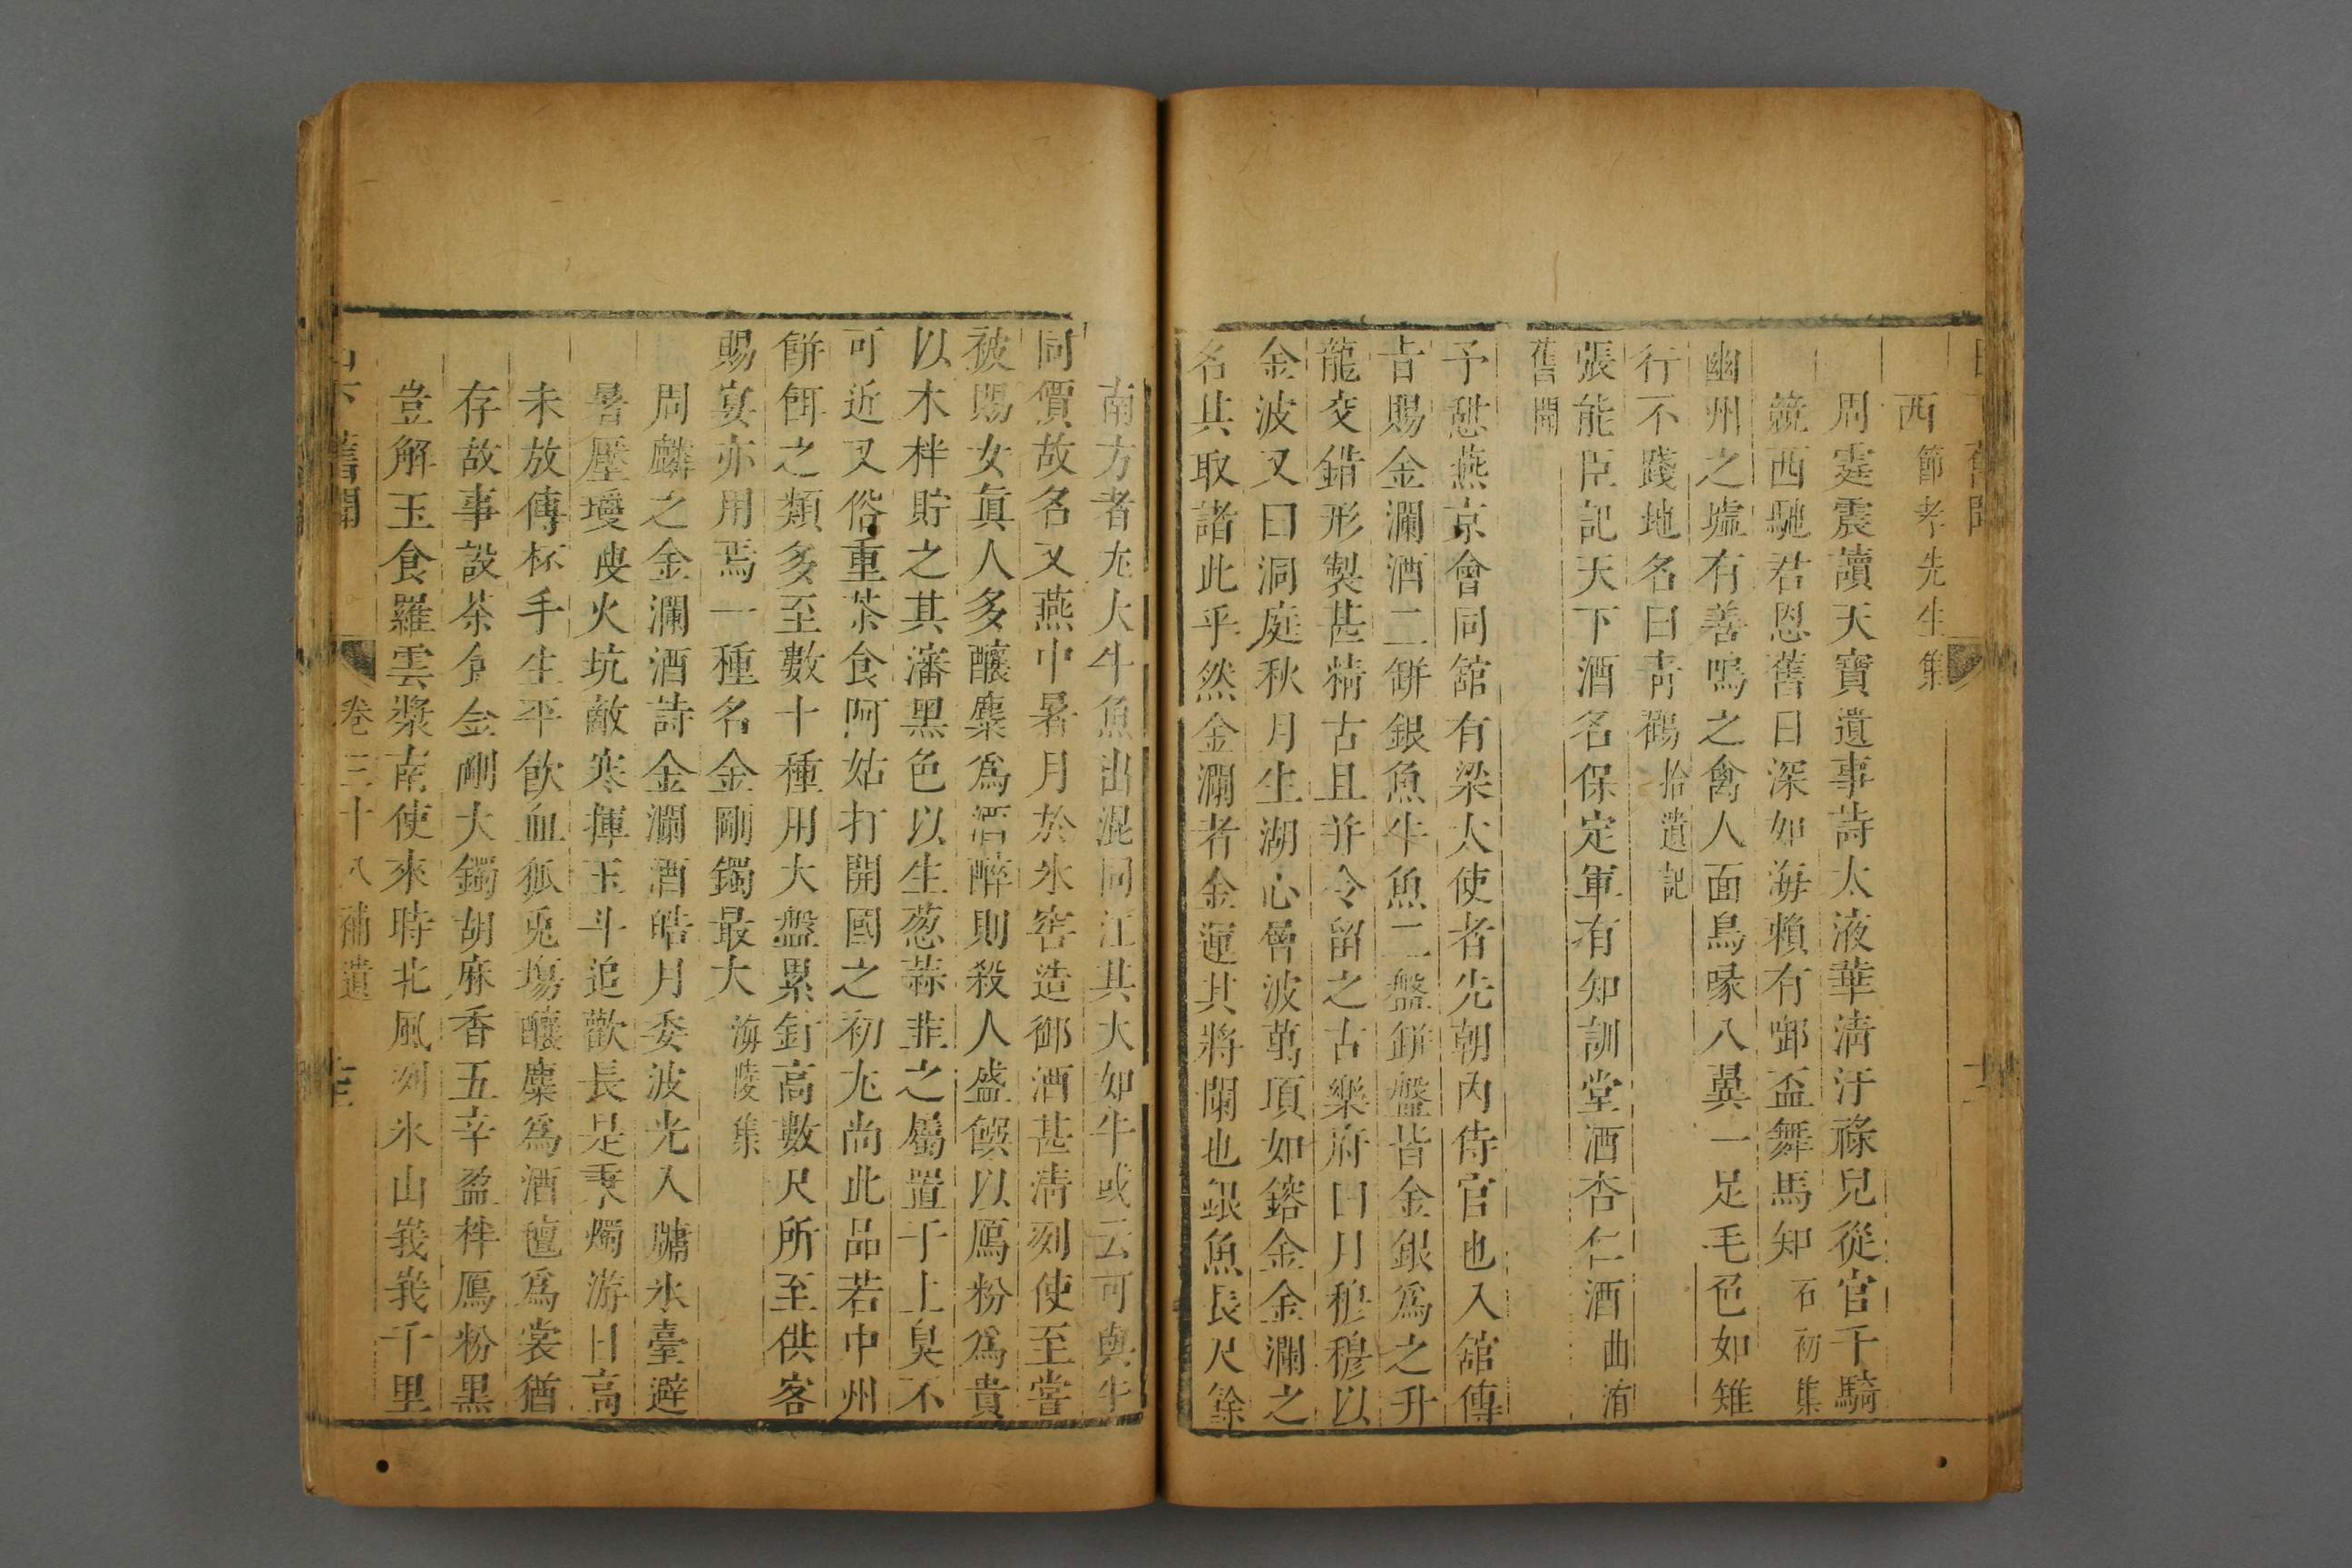 西節孝先生集
周霆震讀天寶遺事詩太液華淸汙祿兒從官千騎
競西馳君恩舊日深如海賴有啣盃舞馬知石初集
幽州之墟有善鳴之禽人面鳥喙八翼一足毛色如雉
行不踐地名曰靑鸐拾遺記
張能臣記天下酒名保定軍有知訓堂酒杏仁酒曲洧
舊聞
予憇燕京會同舘有梁大使者先朝內侍官也入舘傳
旨賜金瀾酒二缾銀魚牛魚二盤缾盤皆金銀爲之升
龍交錯形製甚精古且并令留之古樂府曰月穆穆以
金波又曰洞庭秋月生湖心層波萬頃如鎔金金瀾之
名其取諸此乎然金瀾者金運其將闌也銀魚長尺餘
南方者尤大牛魚出混同江其大如牛或云可與牛
同價故名又燕中暑月於氷窖造御酒甚淸冽使至嘗
被賜女眞人多釀糜爲酒醉則殺人盛饌以鴈粉爲貴
以木柈貯之其瀋黑色以生葱蒜韭之屬置于上臭不
可近又俗重茶食阿姑打開國之初尤尚此品若中州
餠餌之類多至數十種用大盤累飣高數尺所至供客
賜宴亦用焉一種名金剛鐲最大海陵集
周麟之金瀾酒詩金瀾酒皓月委波光入牖氷臺避
暑壓瓊艘火坑敵寒揮玉斗追歡長是秉燭游日高
未放傳杯手生平飮血狐兎塲釀麋爲酒氊爲裳猶
存故事設茶食金剛大鐲胡麻香五辛盈柈鴈粉黑
豈解玉食羅雲漿南使來時北風冽氷山峩峩千里
日下舊聞 卷三十八補遺